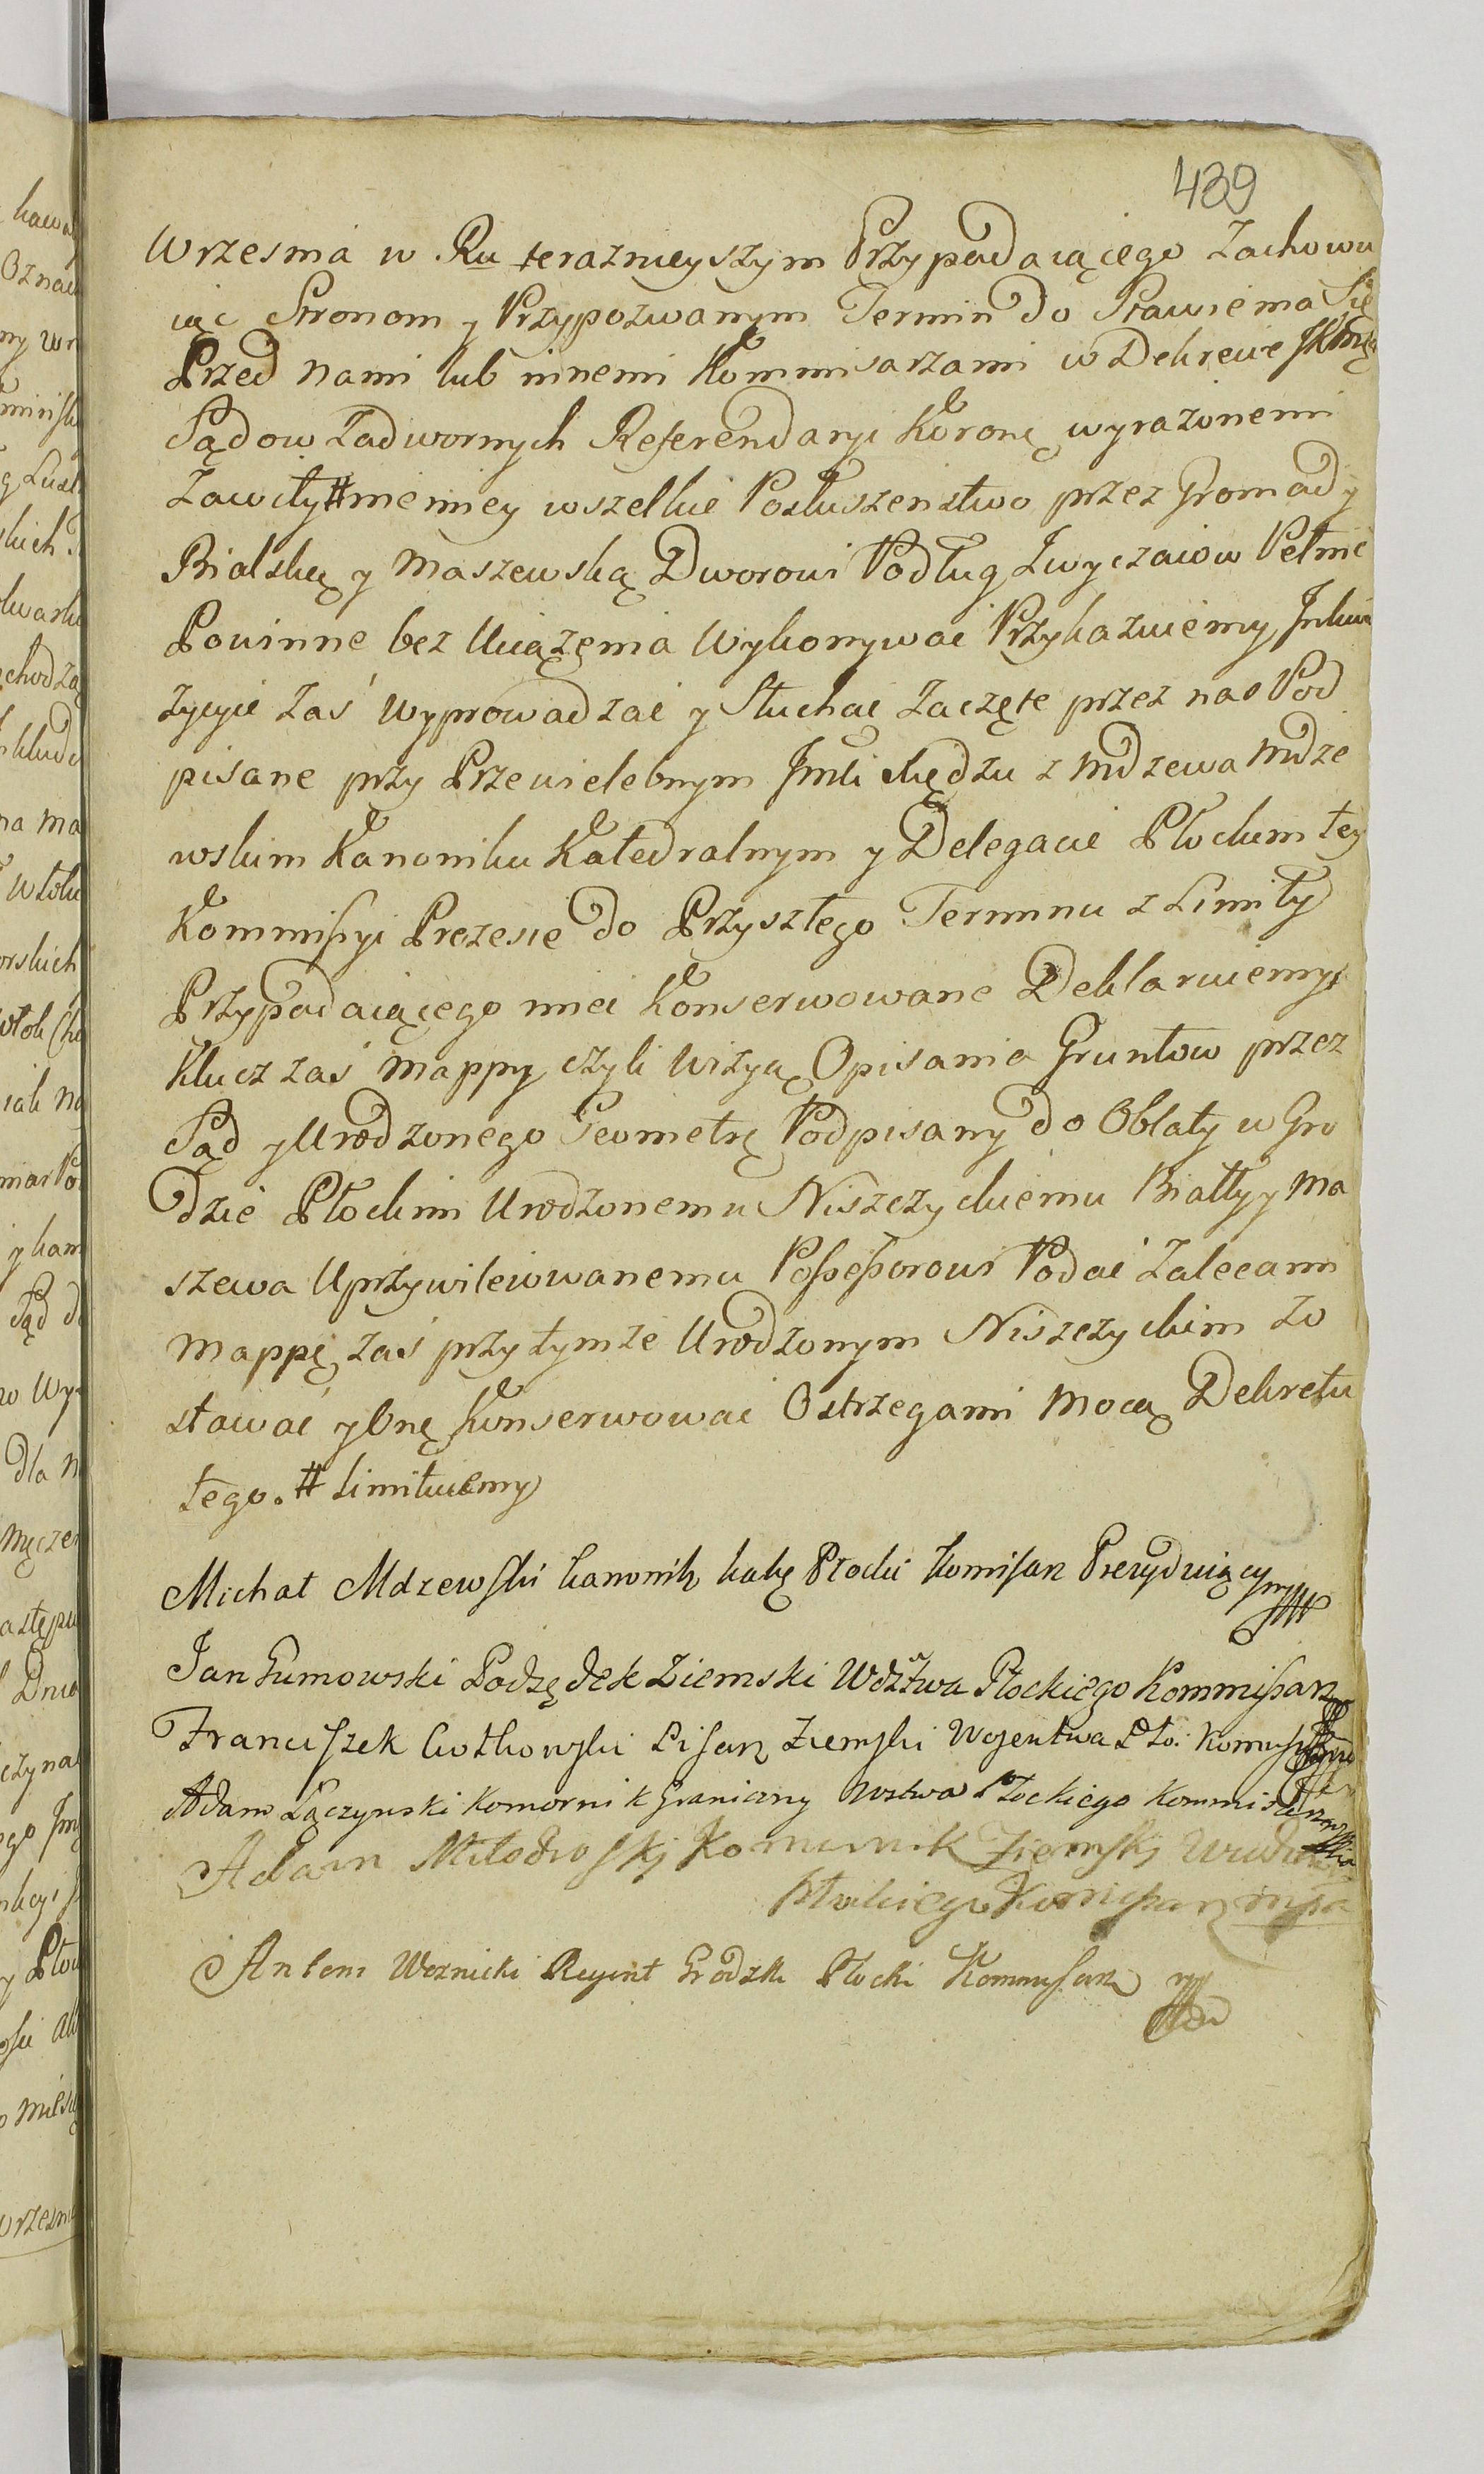 439
Wrzesnia w Ru teraznieyszym Przypadaiącego Zachowu
iąc Stronom y Przypozwanym Termin do Stawienia Się
Przed nami lub innemi Kommisarzami w Dekrecie
Sądow Zadwornych Referendaryi Koronę wyrażonemi
Zawity # niemniey wszelkie Posłuszenstwo przez Gromady
Bialską y Maszewską Dworowi Podług Zwyczaiow Pełnić
Powinne bez Uciążenia Wykonywać Przykazuiemy, Inkwi
zycyie zaś wyprowadzać y Słuchać Zaczęte przez nas Pod
pisane przy Przewielebnym Imci Xiędzu z Mdzewa Mdze
wskim Kanoniku Katedralnym y Delegacie Płockim tey
Kommissyi Prezesie do Przyszłego Terminu z Limity
Przypadaiącego mieć Konserwowane Deklaruiemy
Klucz zaś Mappy czyli Wizyą Opisania Gruntow przez
Sąd y Urodzonego Geometrę Podpisany do Oblaty w Gro
dzie Płockim Urodzonemu Niszczyckiemu Biały y Ma
szewa Uprzywileiowanemu Possessorowi Podać Zalecami
Mappę zaś przy tymze Urodzonym Niszczyckim Zo
stawać y Onę Konserwować Ostrzegami Mocą Dekretu
tego. # Limituiemy
Michał Mdzewski Kanonik Katę Płocki Komisarz Prezyduiący
Jan Gumowski Podsędek Ziemski Wdztwa Płockiego Kommissarz
Franciszek Pisarz Ziemski Wojewtwa Pło: Komissarz
Adam Łączynski Komornik Graniczny Wstwa Płockiego Kommisarz
Adam Miłodroski Komornik Ziemski
Płockiego Komissarz mpa
Antoni Woznicki Regent Grodzki Płocki Kommissarz